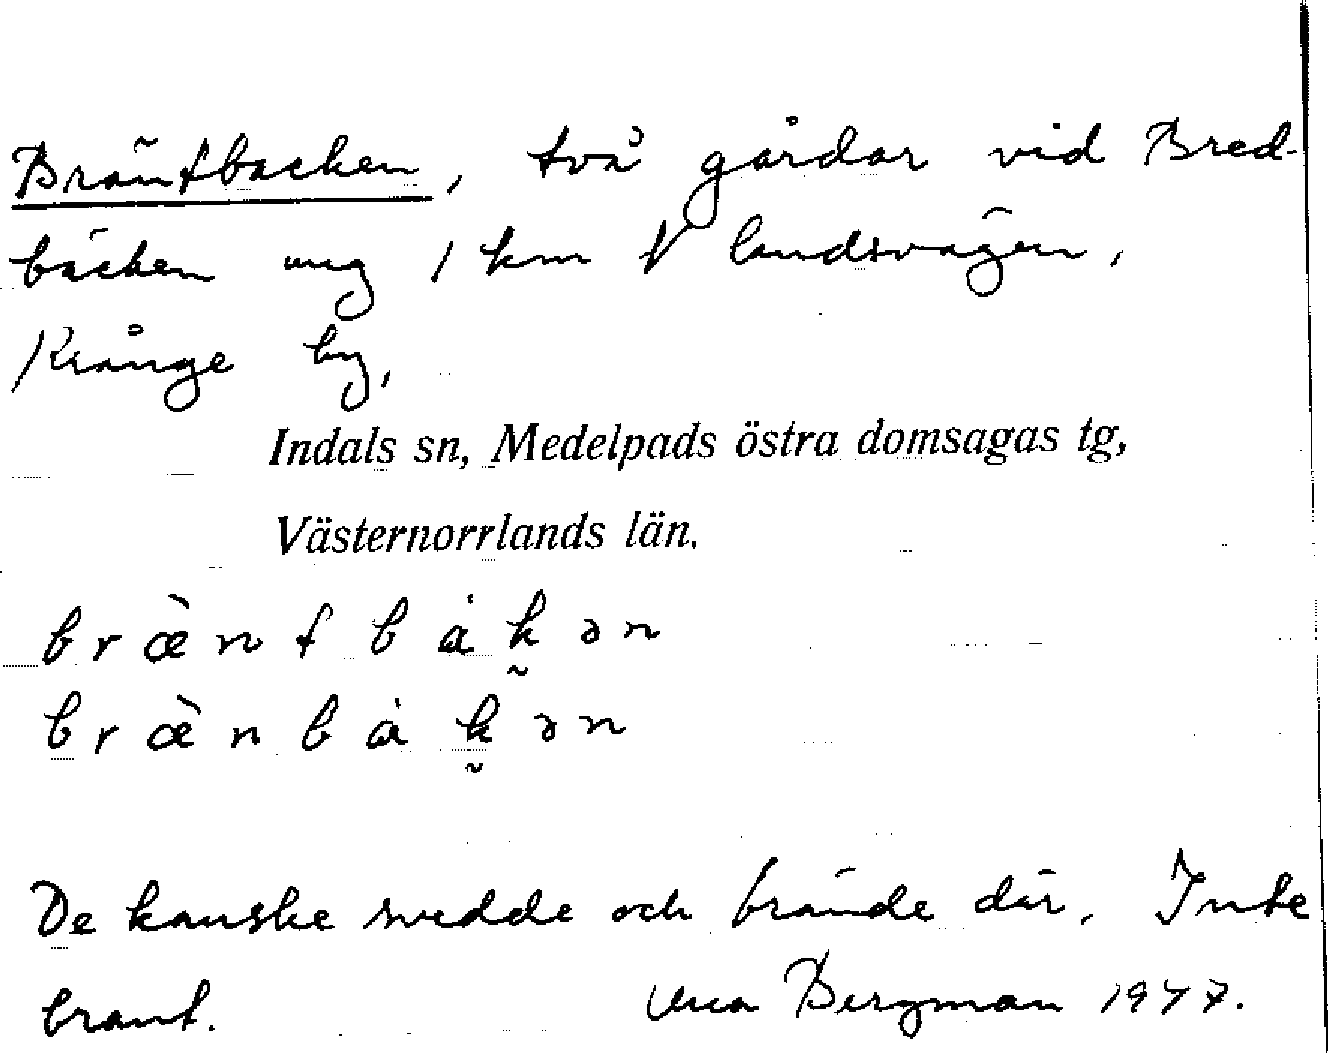 Bräntbacken, två gårdar vid Bred-
bäcken ung 1 km V landsvägen,
Kränge by,
Indals sn, Medelpads östra domsagas tg,
Västernorrlands län.
bræ̀ntbȧk̰ən
bræ̀nbȧk̰ən
De kanske svedde och brände där. Inte
brant. Bergman 1947.